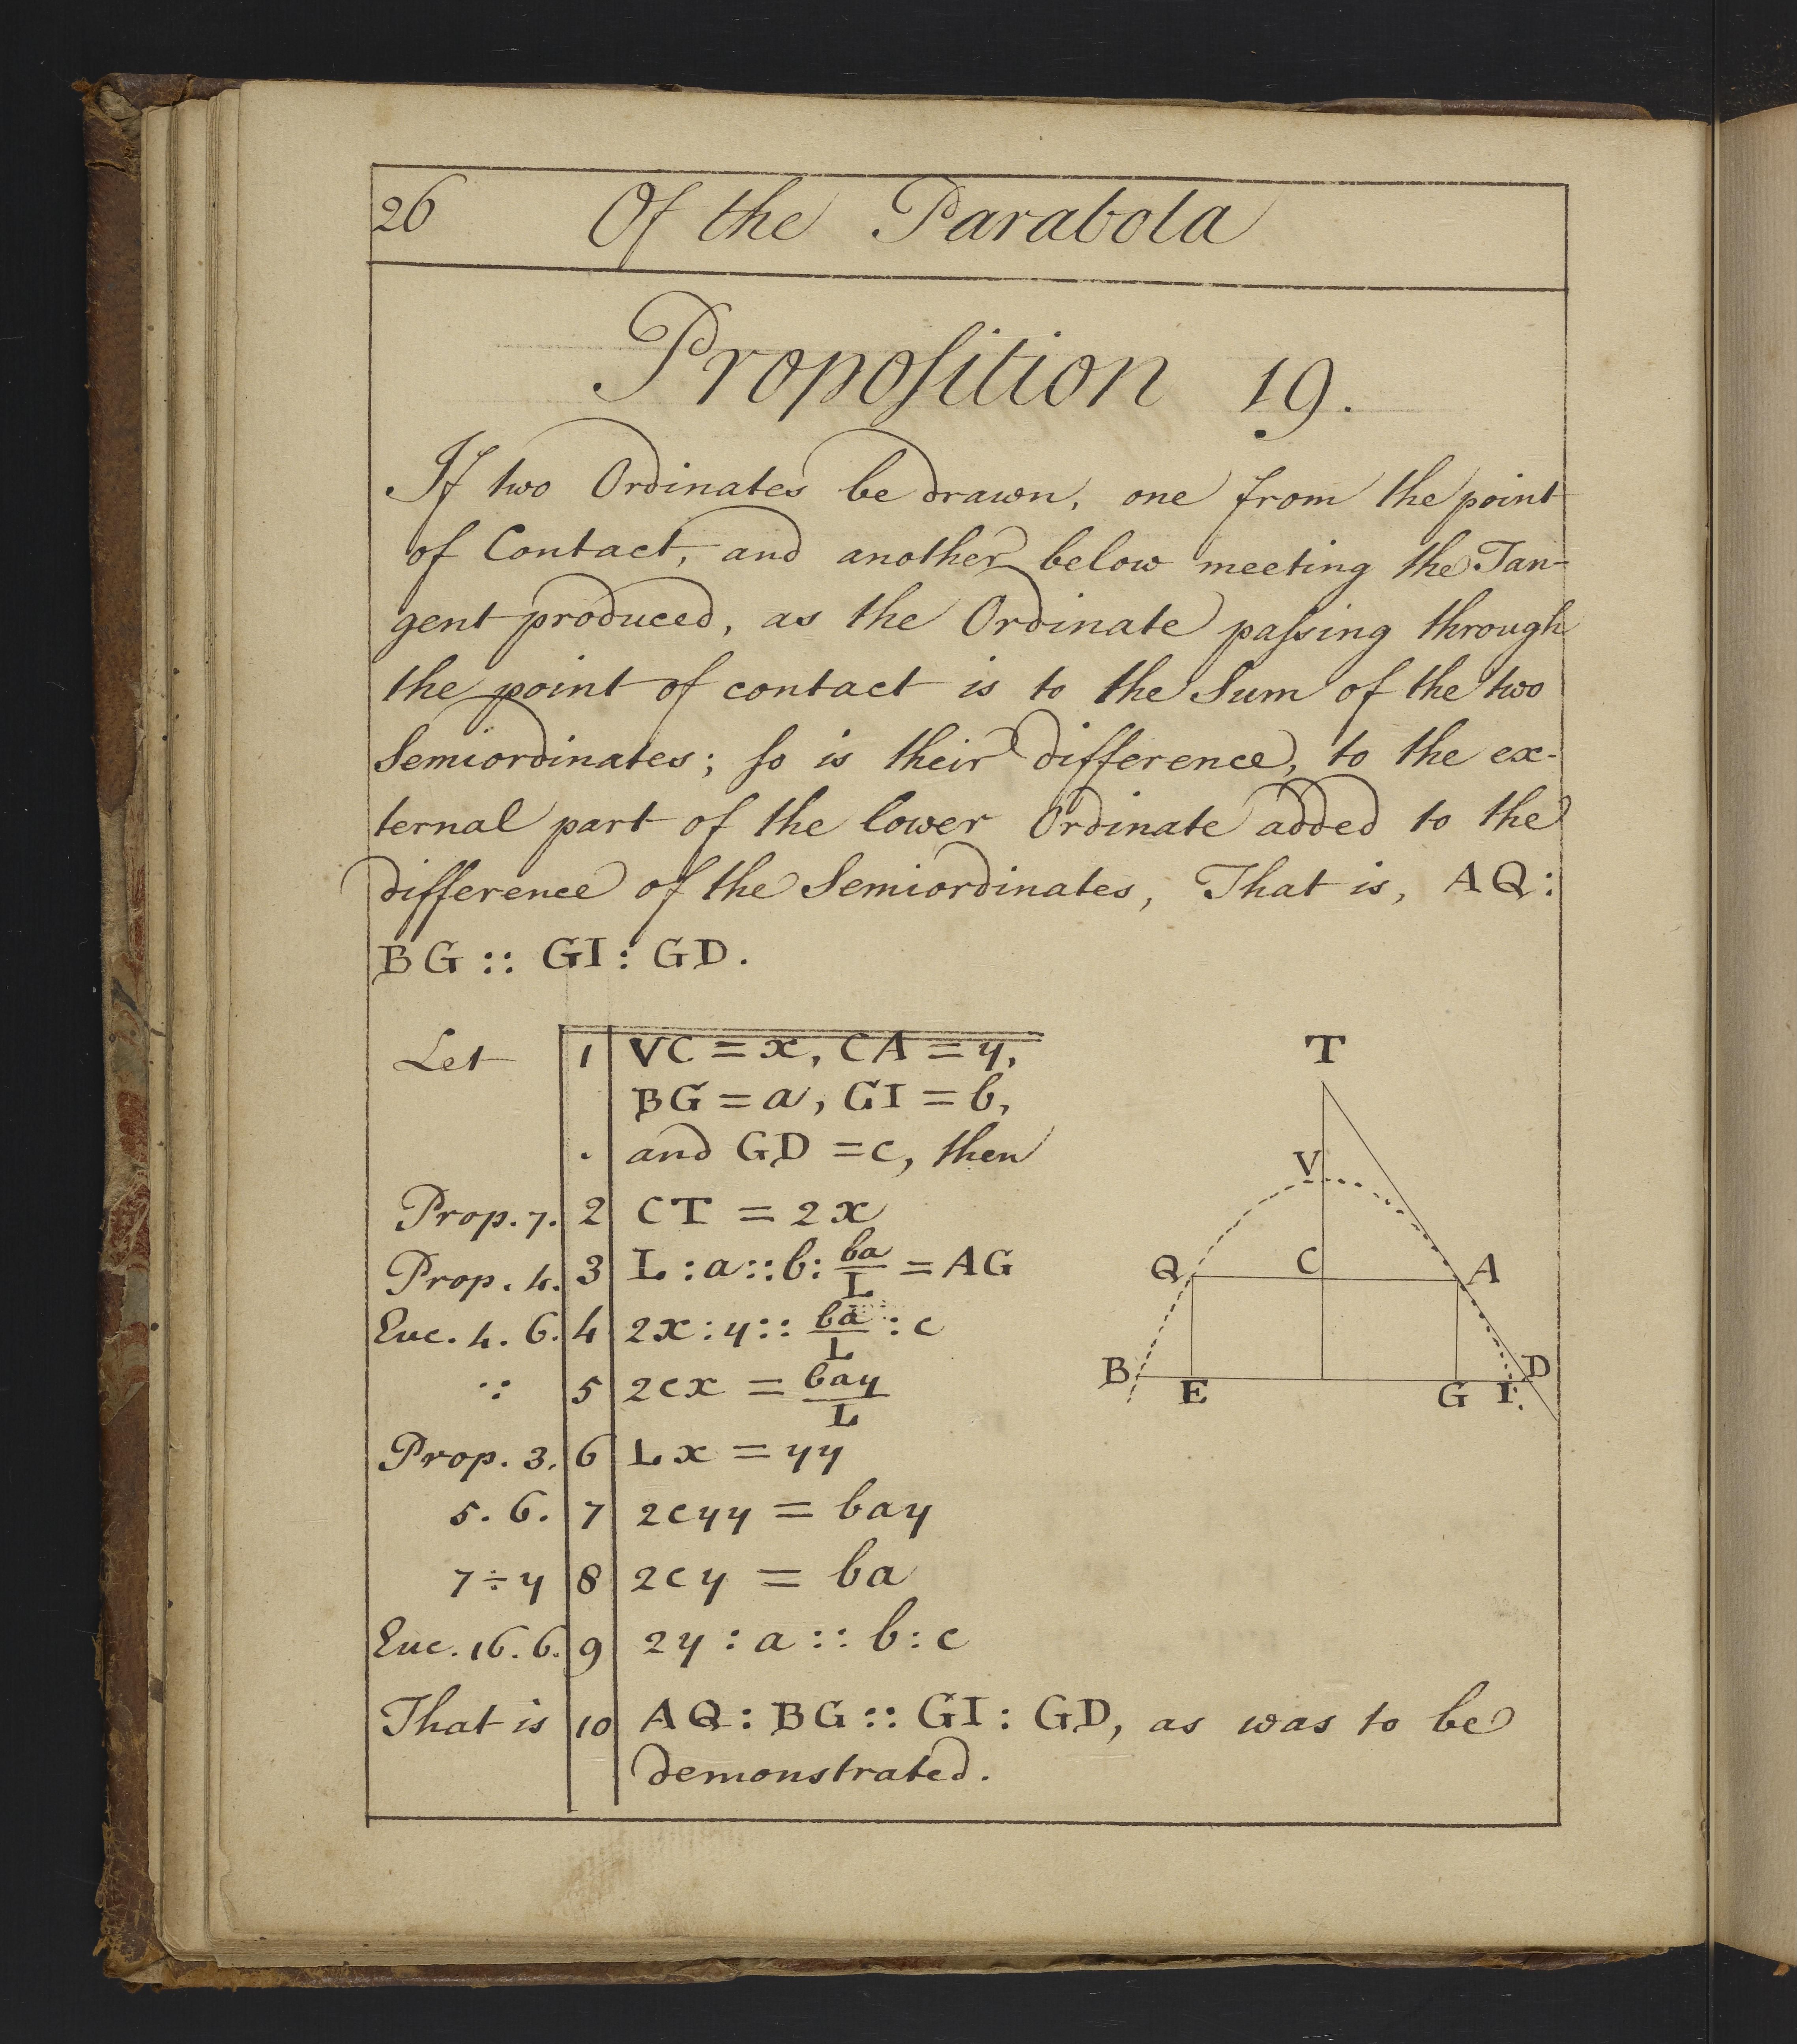 26 Of the Parabola
Propoſition 19.
If two Ordinates be drawn, one from the point
of Contact, and another below meeting the Tan-
gent produced, as the Ordinate paſsing through
the point of contact is to the Sum of the two
Semiordinates; ſo is their difference, to the ex-
ternal part of the lower Ordinate added to the
difference of the Semiordinates, That is, AQ:
BG :: GI : GD.
Let 1 VC = x, CA = y,
BG = a, GI = b,
. and GD = c, then
Prop. 7. 2 CT = 2x
Prop. 4. 3 L : a :: b : ba/L = AG
Euc. 4. 6. 4 2x : y :: ba/L : c
∵ 5 2cx = bay/L
Prop. 3. 6 Lx = yy
5. 6. 7 2cyy = bay
7 ÷ y 8 2cy = ba
Euc. 16. 6. 9 2y : a :: b : c
That is 10 AQ : BG :: GI : GD, as was to be
demonstrated.
T
V
Q C A
B E G I D